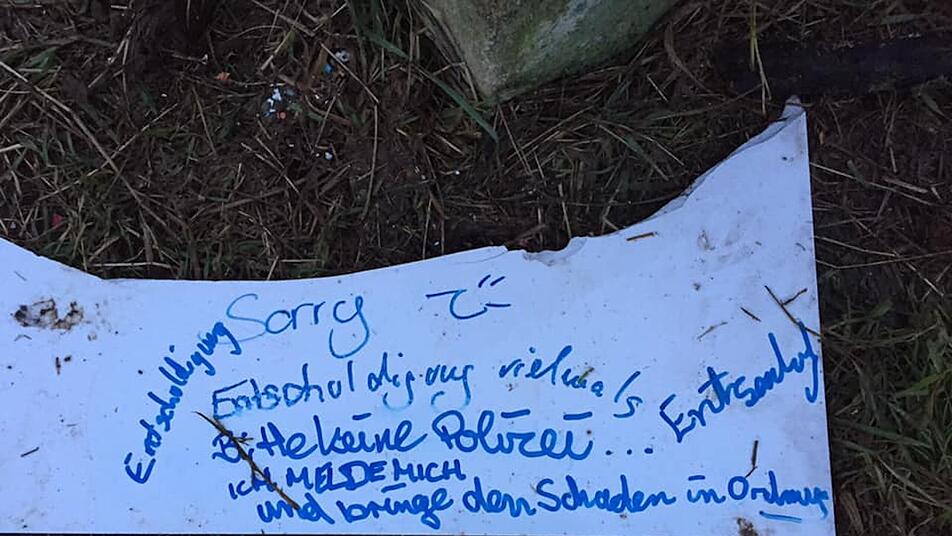 Sorry
Entschuldigung
Entschuldigung vielmals
Bitte keine Polizei...
ICH MELDE MICH
und bringe den Schaden in Ordnung